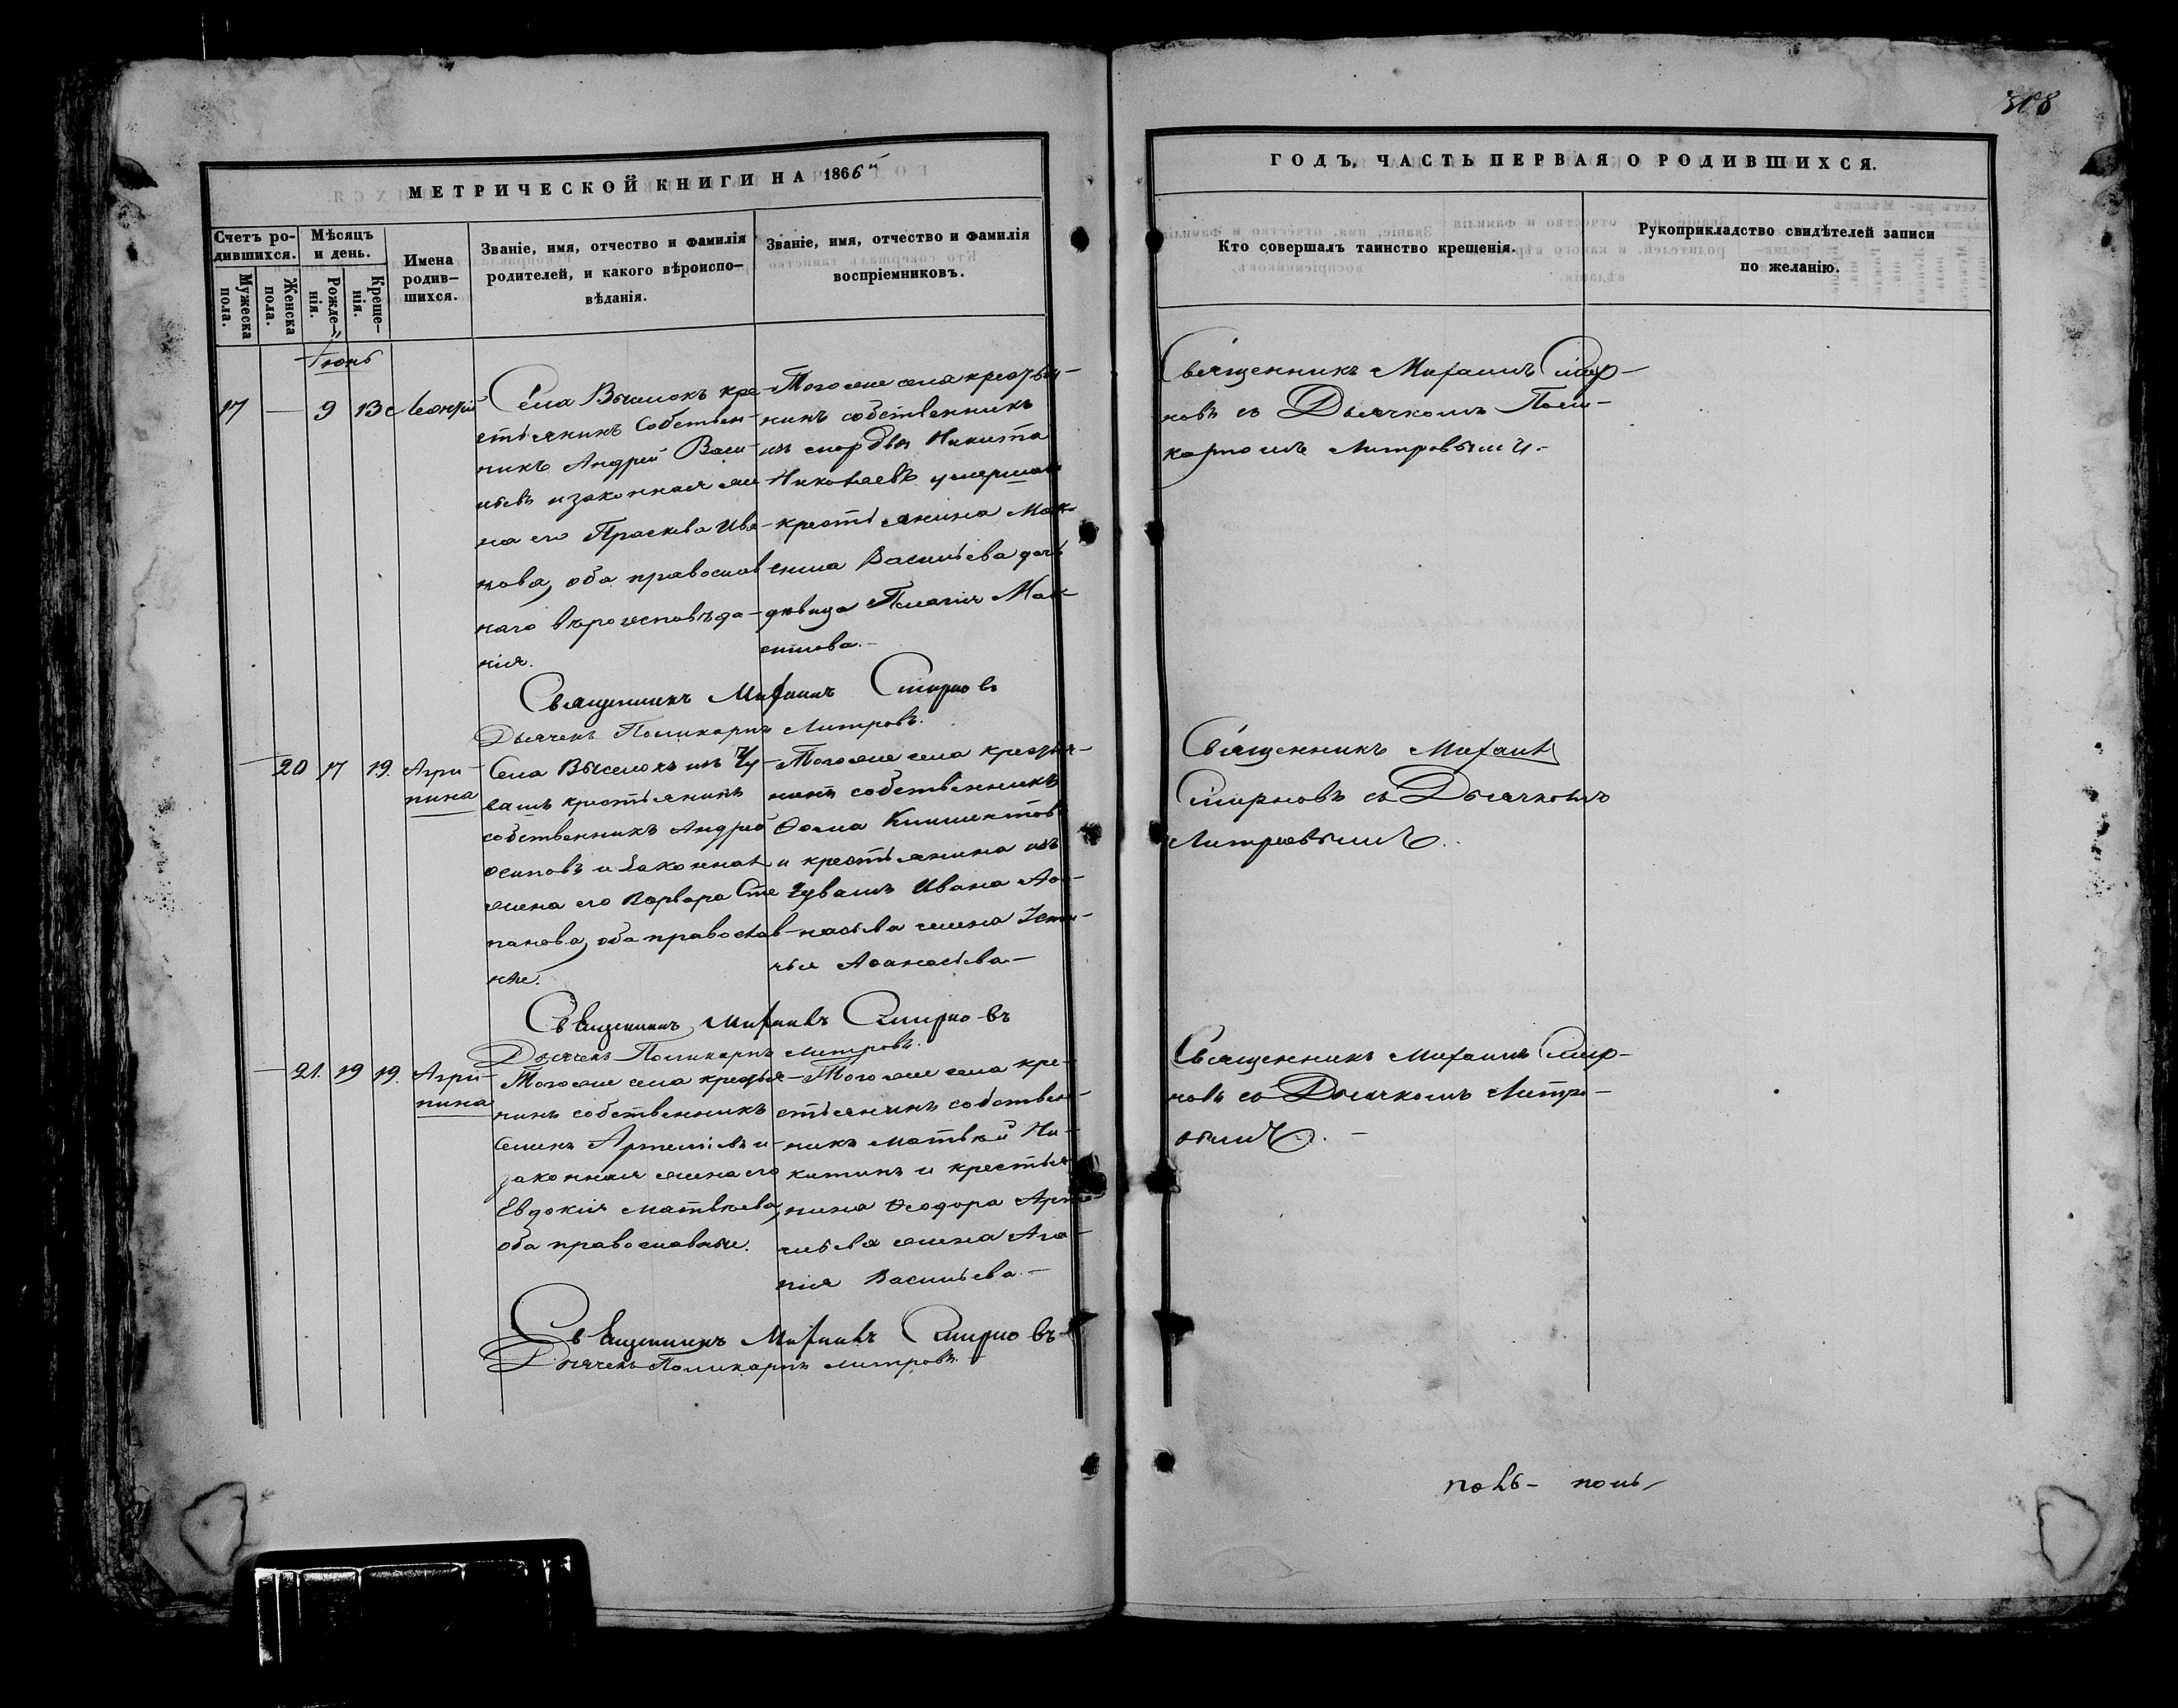 308
МЕТРИЧЕСКОЙ КНИГИ НА 1866й
ГОДЪ, ЧАСТЬ ПЕРВАЯ О РОДИВШИХСЯ.
Счетъ ро-
дившихся.
Мужеска
пола.
Женска
пола.
Мѣсяцъ
и день.
Рожде-
нія.
Креще-
нія.
Имена
родив-
шихся.
Званіе, имя, отчество и фамилія
родителей, и какого вѣроиспо-
вѣданія.
Званіе, имя, отчество и фамилія
воспріемниковъ.
Кто совершалъ таинство крещенія.
Рукоприкладство свидѣтелей записи
по желанію.
Іюнь
17 — 9 13 Леонтій
Села Выселокъ кре-
стьянинъ собствен-
никъ Андрей Васи-
льевъ и законная же-
на его Прасковья Ива-
нова, оба православ
наго вѣроисповѣда-
нія.
Того же села крестья-
нинъ собственникъ
изъ мордвы Никита
Николаевъ умершаго
крестьянина Мак-
сима Васильева дочь
дѣвица Пелагія Мак-
симова.-
Священникъ Михаилъ Смир-
новъ съ Дьячкомъ Поли-
карпомъ Митровымъ.-
Священникъ Михаилъ Смирновъ
Дьячекъ Поликарпъ Митровъ.
— 20 17 19. Агри-
пина
Села Выселокъ изъ Чу-
вашъ крестьянинъ
собственникъ Андрей
Осиповъ и законная
жена его Варвара Сте
панова, оба православ-
ные.
Того же села крестья-
нинъ собственникъ
Ѳома Климентовъ
и крестьянина изъ
Чувашъ Ивана Аѳа-
насьева жена
Аѳанасьева.-
Священникъ Михаилъ
Смирновъ съ Дьячкомъ
Митровымъ.
Священникъ Михаилъ Смирновъ
Дьячекъ Поликарпъ Митровъ.
— 21. 19 19. Агри-
пина
Того же села крестья-
нинъ собственникъ
Семенъ Артемьевъ и
законная жена его
Евдокія Матвѣева,
оба православные.
Того же села кре-
стьянинъ собствен-
никъ Матвѣй Ни-
китинъ и крестья-
нина Ѳеодора Арте-
мьева жена Ага-
пія Васильева.-
Священникъ Михаилъ Смир-
новъ съ Дьячкомъ Митро-
вымъ. -
Священникъ Михаилъ Смирновъ
Дьячекъ Поликарпъ Митровъ.